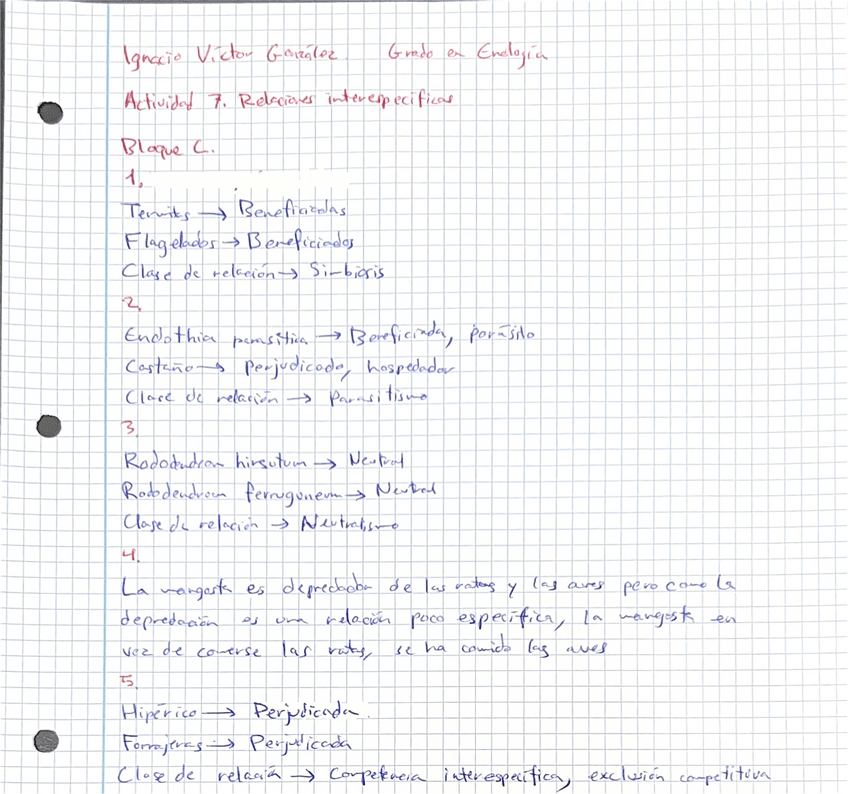 Ignacio Víctor González. Grado en Enología
Actividad 7. Relaciones interespecíficas
Bloque C.
1.
Termitas → Beneficiadas
Flagelados → Beneficiados
Clase de relación → Simbiosis
2.
Endothia parasítica → Beneficiada, parásito
Castaño → Perjudicado, hospedador
Clase de relación → Parasitismo
3.
Rododendron hirsutum → Neutral
Rododendrom ferrugoneum → Neutral
Clase de relación → Neutralismo
4.
La mangosta es depredador de las ratas y las aves pero como la
depredación es una relación poco específica, la mangosta en
vez de comerse las ratas, se ha comido las aves
5.
Hipérico → Perjudicada.
Forrajeras → Perjudicada
Clase de relación → Competencia interespecífica, exclusión competitiva